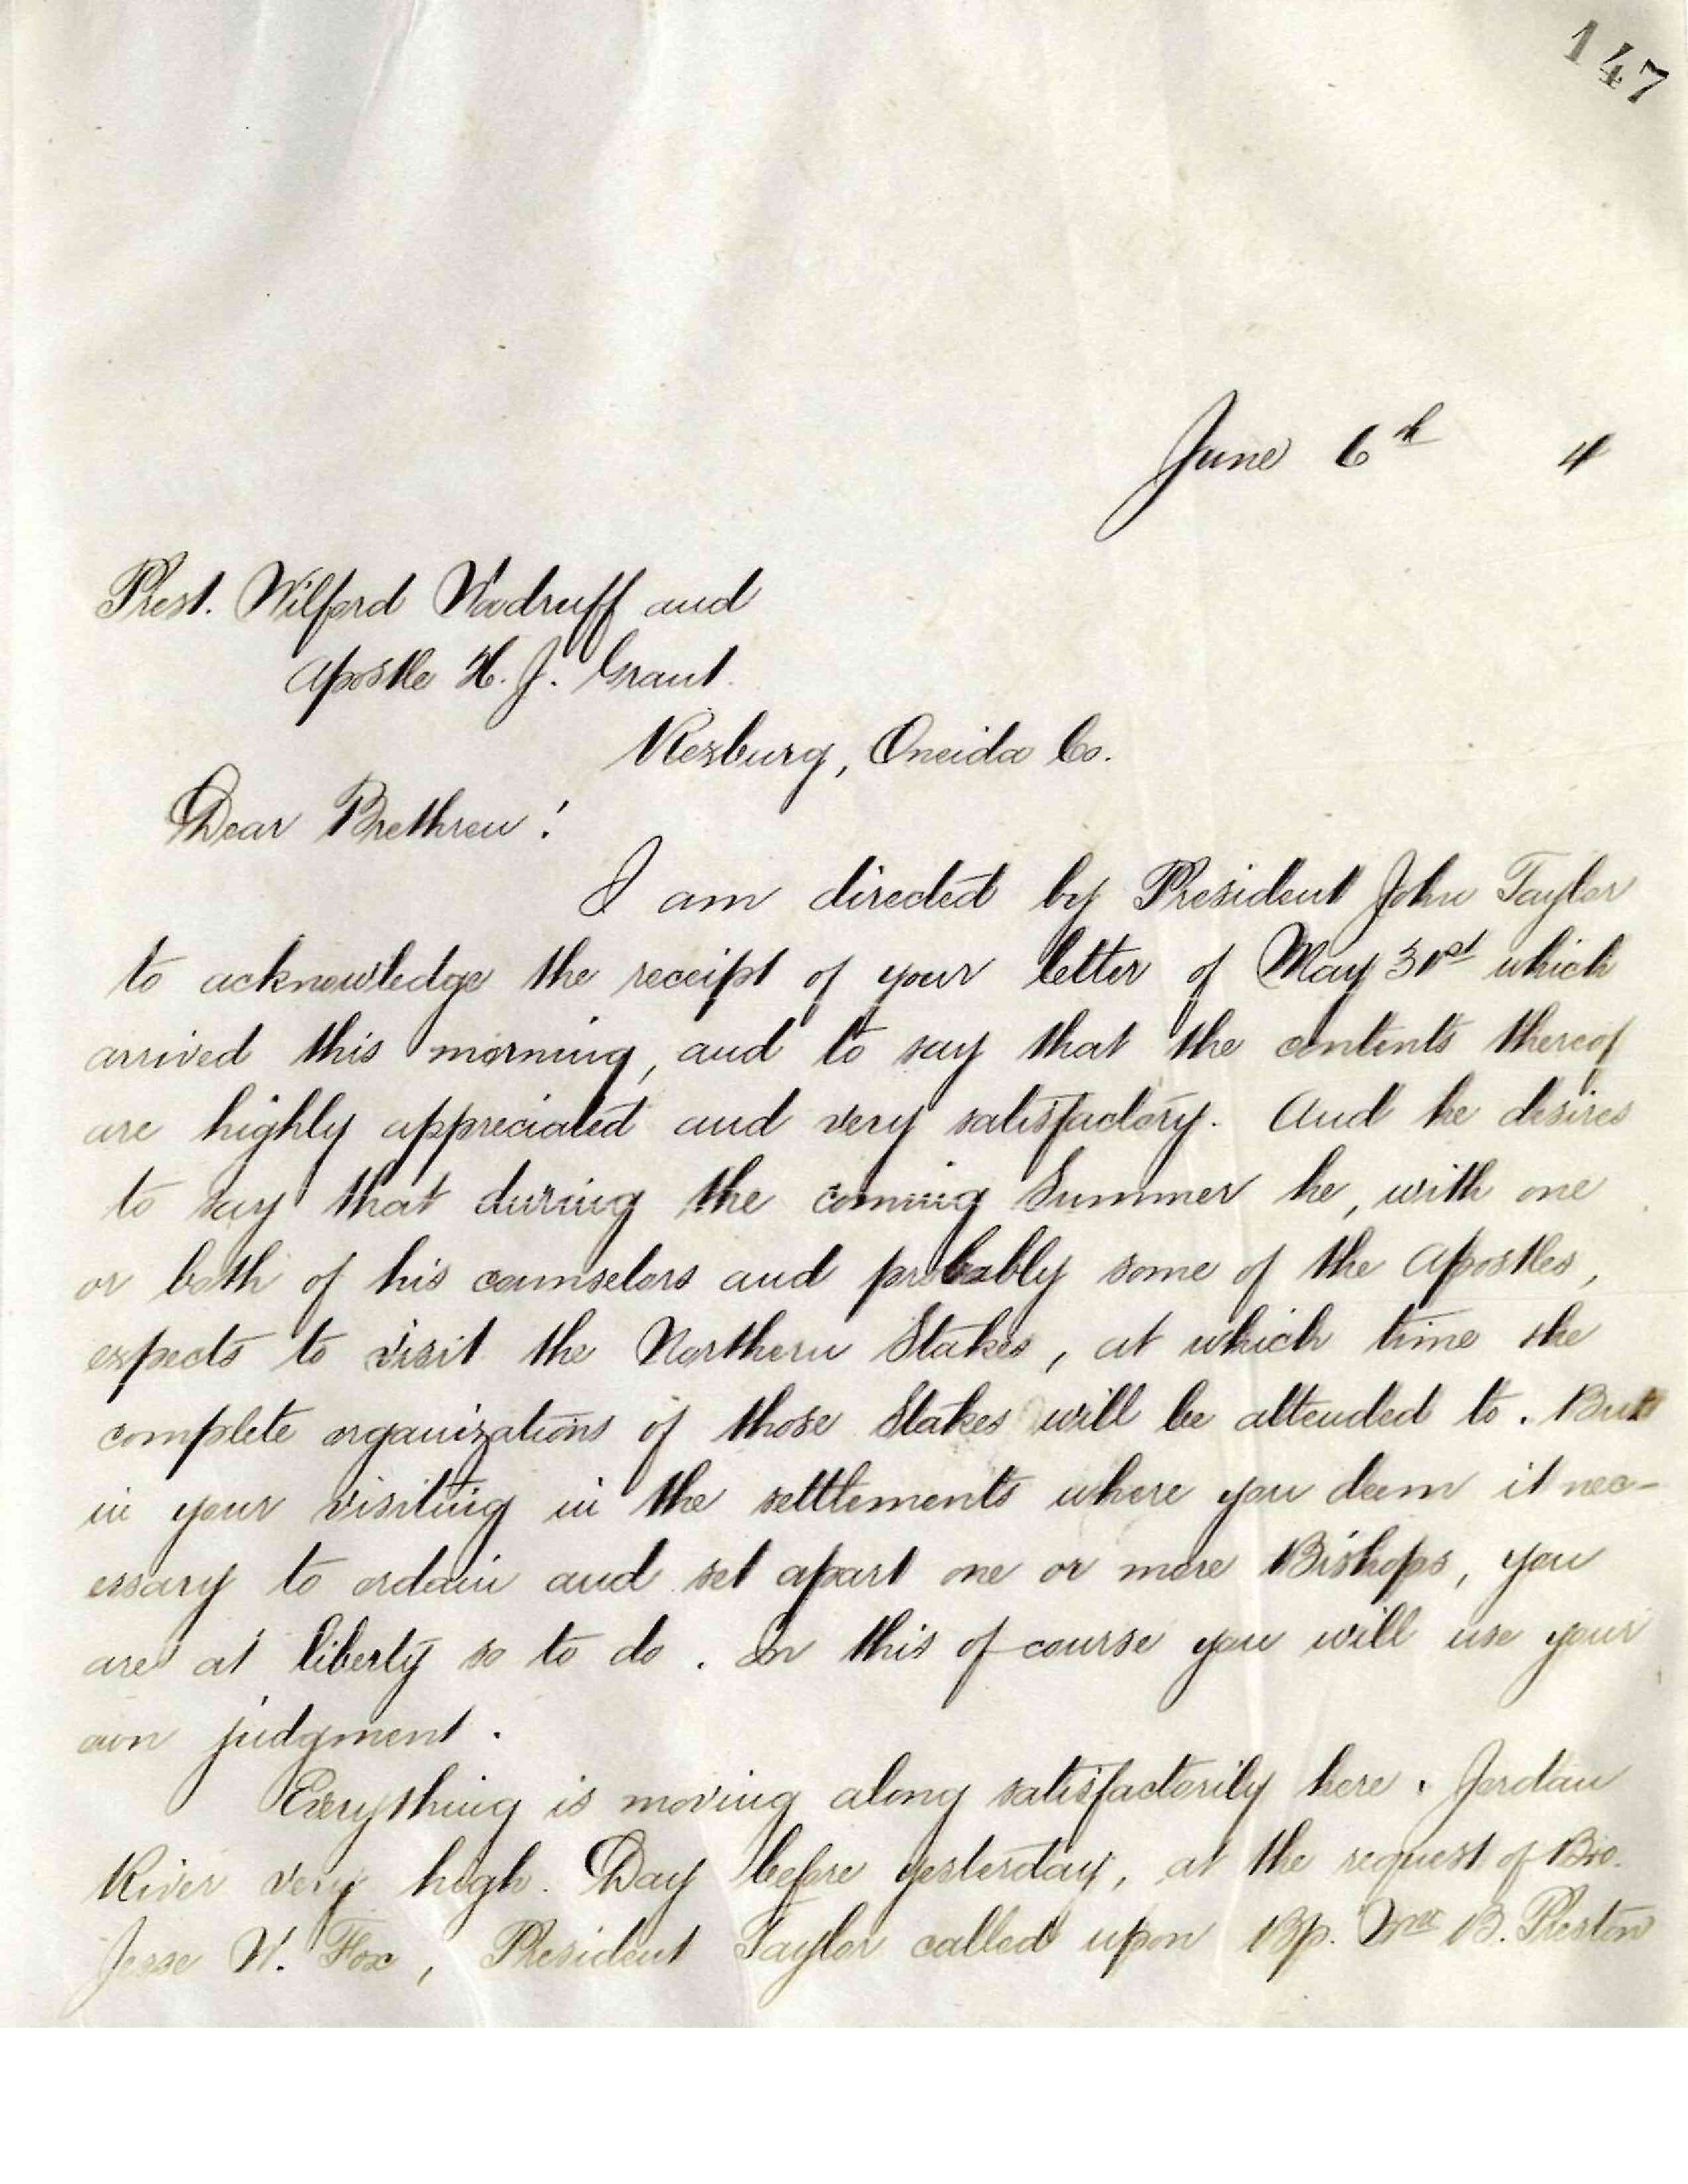 147
June 6th 4
Prest. Wilford Woodruff and
Apostle H. J. Grant.
Rexburg, Oneida Co.
Dear Brethren:
I am directed by President John Taylor
to acknowledge the receipt of your letter of May 31st which
arrived this morning, and to say that the contents thereof
are highly appreciated and very satisfactory. And he desires
to say that during the coming Summer he, with one
or both of his counselors and probably some of the Apostles,
expects to visit the Northern Stakes, at which time the
complete organizations of those Stakes will be attended to. But
in your visiting in the settlements where you deem it nec-
essary to ordain and set apart one or more Bishops, you
are at liberty so to do. In this of course you will use your
own judgment.
Everything is moving along satisfactorily here. Jordan
River very high. Day before yesterday, at the request of Bro.
Jesse W. Fox, President Taylor called upon Bp. Wm B. Preston